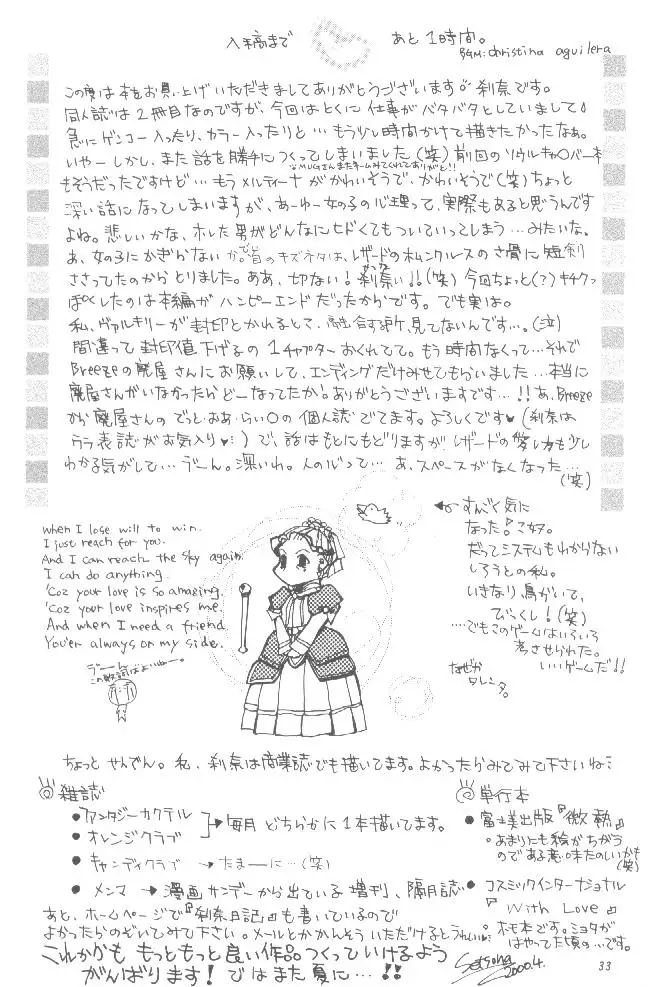 入稿まで あと1時間。
BGM: christina aguilera
この度は本をお買い上げいただきましてありがとうございます。刹奈です。
同人誌は2冊目なのですが、今回はとくに仕事がバタバタとしていまして
急にゲンコー入ったり、カラー入ったりと…もう少し時間かけて描きたかったなぁ。
いやーしかし、また話を勝手につくってしまいました(笑)前回のソウルキャ〇バー本
MUGさんまたネームみてくれてありがと!!
もそうだったですけど…もうメルティーナがかわいそうで、かわいそうで(笑)ちょっと
深い話になってしまいますが、あーゆー女の子の心理って、実際もあると思うんです
よね。悲しいかな、ホレた男がどんなにヒドくてもついていってしまう…みたいな。
あ、女の子にかぎらないか。で首のキズネタは、レザードのホムンクルスのさ骨に短剣
ささってたのからとりました。ああ、切ない!刹奈い!!(笑)今回ちょっと(?)キチクっ
ぽくしたのは本編がハンピーエンドだったからです。でも実は。
私、ヴァルキリーが封印とかれるとこ、融合する所、見てないんです…。(泣)
間違って封印値下げるの1チャプターおくれてて。もう時間なくって…それで
Breezeの廃屋さんにお願いして、エンディングだけみせてもらいました…本当に
廃屋さんがいなかったらどーなってたか!ありがとうございますです…!!あ、Breeze
から廃屋さんのでっど・おあ・らい〇の個人誌でてます。よろしくです♥(刹奈は
うら表誌がお気入り♥)で、話はもとにもどりますがレザードの愛し方も少し
わかる気がして…うーん。深いわ。人の心って…あ、スペースがなくなった…
(笑)
when I lose will to win.
I just reach for you.
And I can reach the sky again.
I can do anything.
'Coz your love is so amazing.
'Coz your love inspires me.
And when I need a friend
You'er always on my side.
うーん
この歌詞はよいねー。
←すんごく気に
なった『コ奴。
だってシステムもわからない
しろうとの私。
いきなり鳥がいて、
びっくし!(笑)
…でもこのゲームはいろいろ
考させられた。
いいゲームだ!!
なぜか
タレンタ。
ちょっとせんでん。私、刹奈は商業誌でも描いてます。よかったらみてみて下さいね
◎雑誌
●ファンタジーカクテル
●オレンジクラブ
→毎月どちらかに1本描いてます。
●キャンディクラブ →たまーに…(笑)
●メンマ →漫画サンデーから出ている増刊、隔月誌
◎単行本
●富士美出版『微熱』
。あまりにも絵がちがう
のである意味たのしいかも
(笑)
●コスミックインターナショナル
『With Love』
。ホモ本です。ミヨタが
はやってた頃の…です。
あと、ホームページで『刹奈日記』も書いているので
よかったらのぞいてみて下さい。メールとかかんそういただけるとうれしい
これからももっともっと良い作品つくっていけるよう
がんばります!ではまた夏に…!!
Setsuna
2000.4.
33